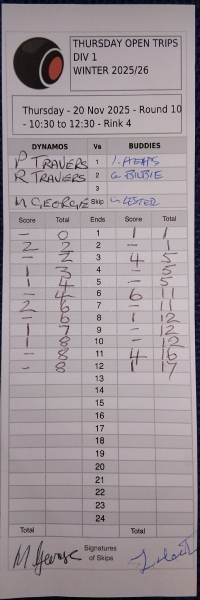 THURSDAY OPEN TRIPS
DIV 1
WINTER 2025/26
Thursday - 20 Nov 2025 - Round 10
- 10:30 to 12:30 - Rink 4
DYNAMOS Vs BUDDIES
P TRAVERS 1 I. HEAPS
R TRAVERS 2 G. BILBIE
3
M GEORGE Skip LESTER
Score Total Ends Score Total
- 0 1 1 1
2 2 2 - 1
- 2 3 4 5
1 3 4 - 5
1 4 5 - 5
- 4 6 6 11
2 6 7 - 11
- 6 8 1 12
1 7 9 - 12
1 8 10 - 12
- 8 11 4 16
- 8 12 1 17
13
14
15
16
17
18
19
20
21
22
23
24
Total Total
M George Signatures
of Skips